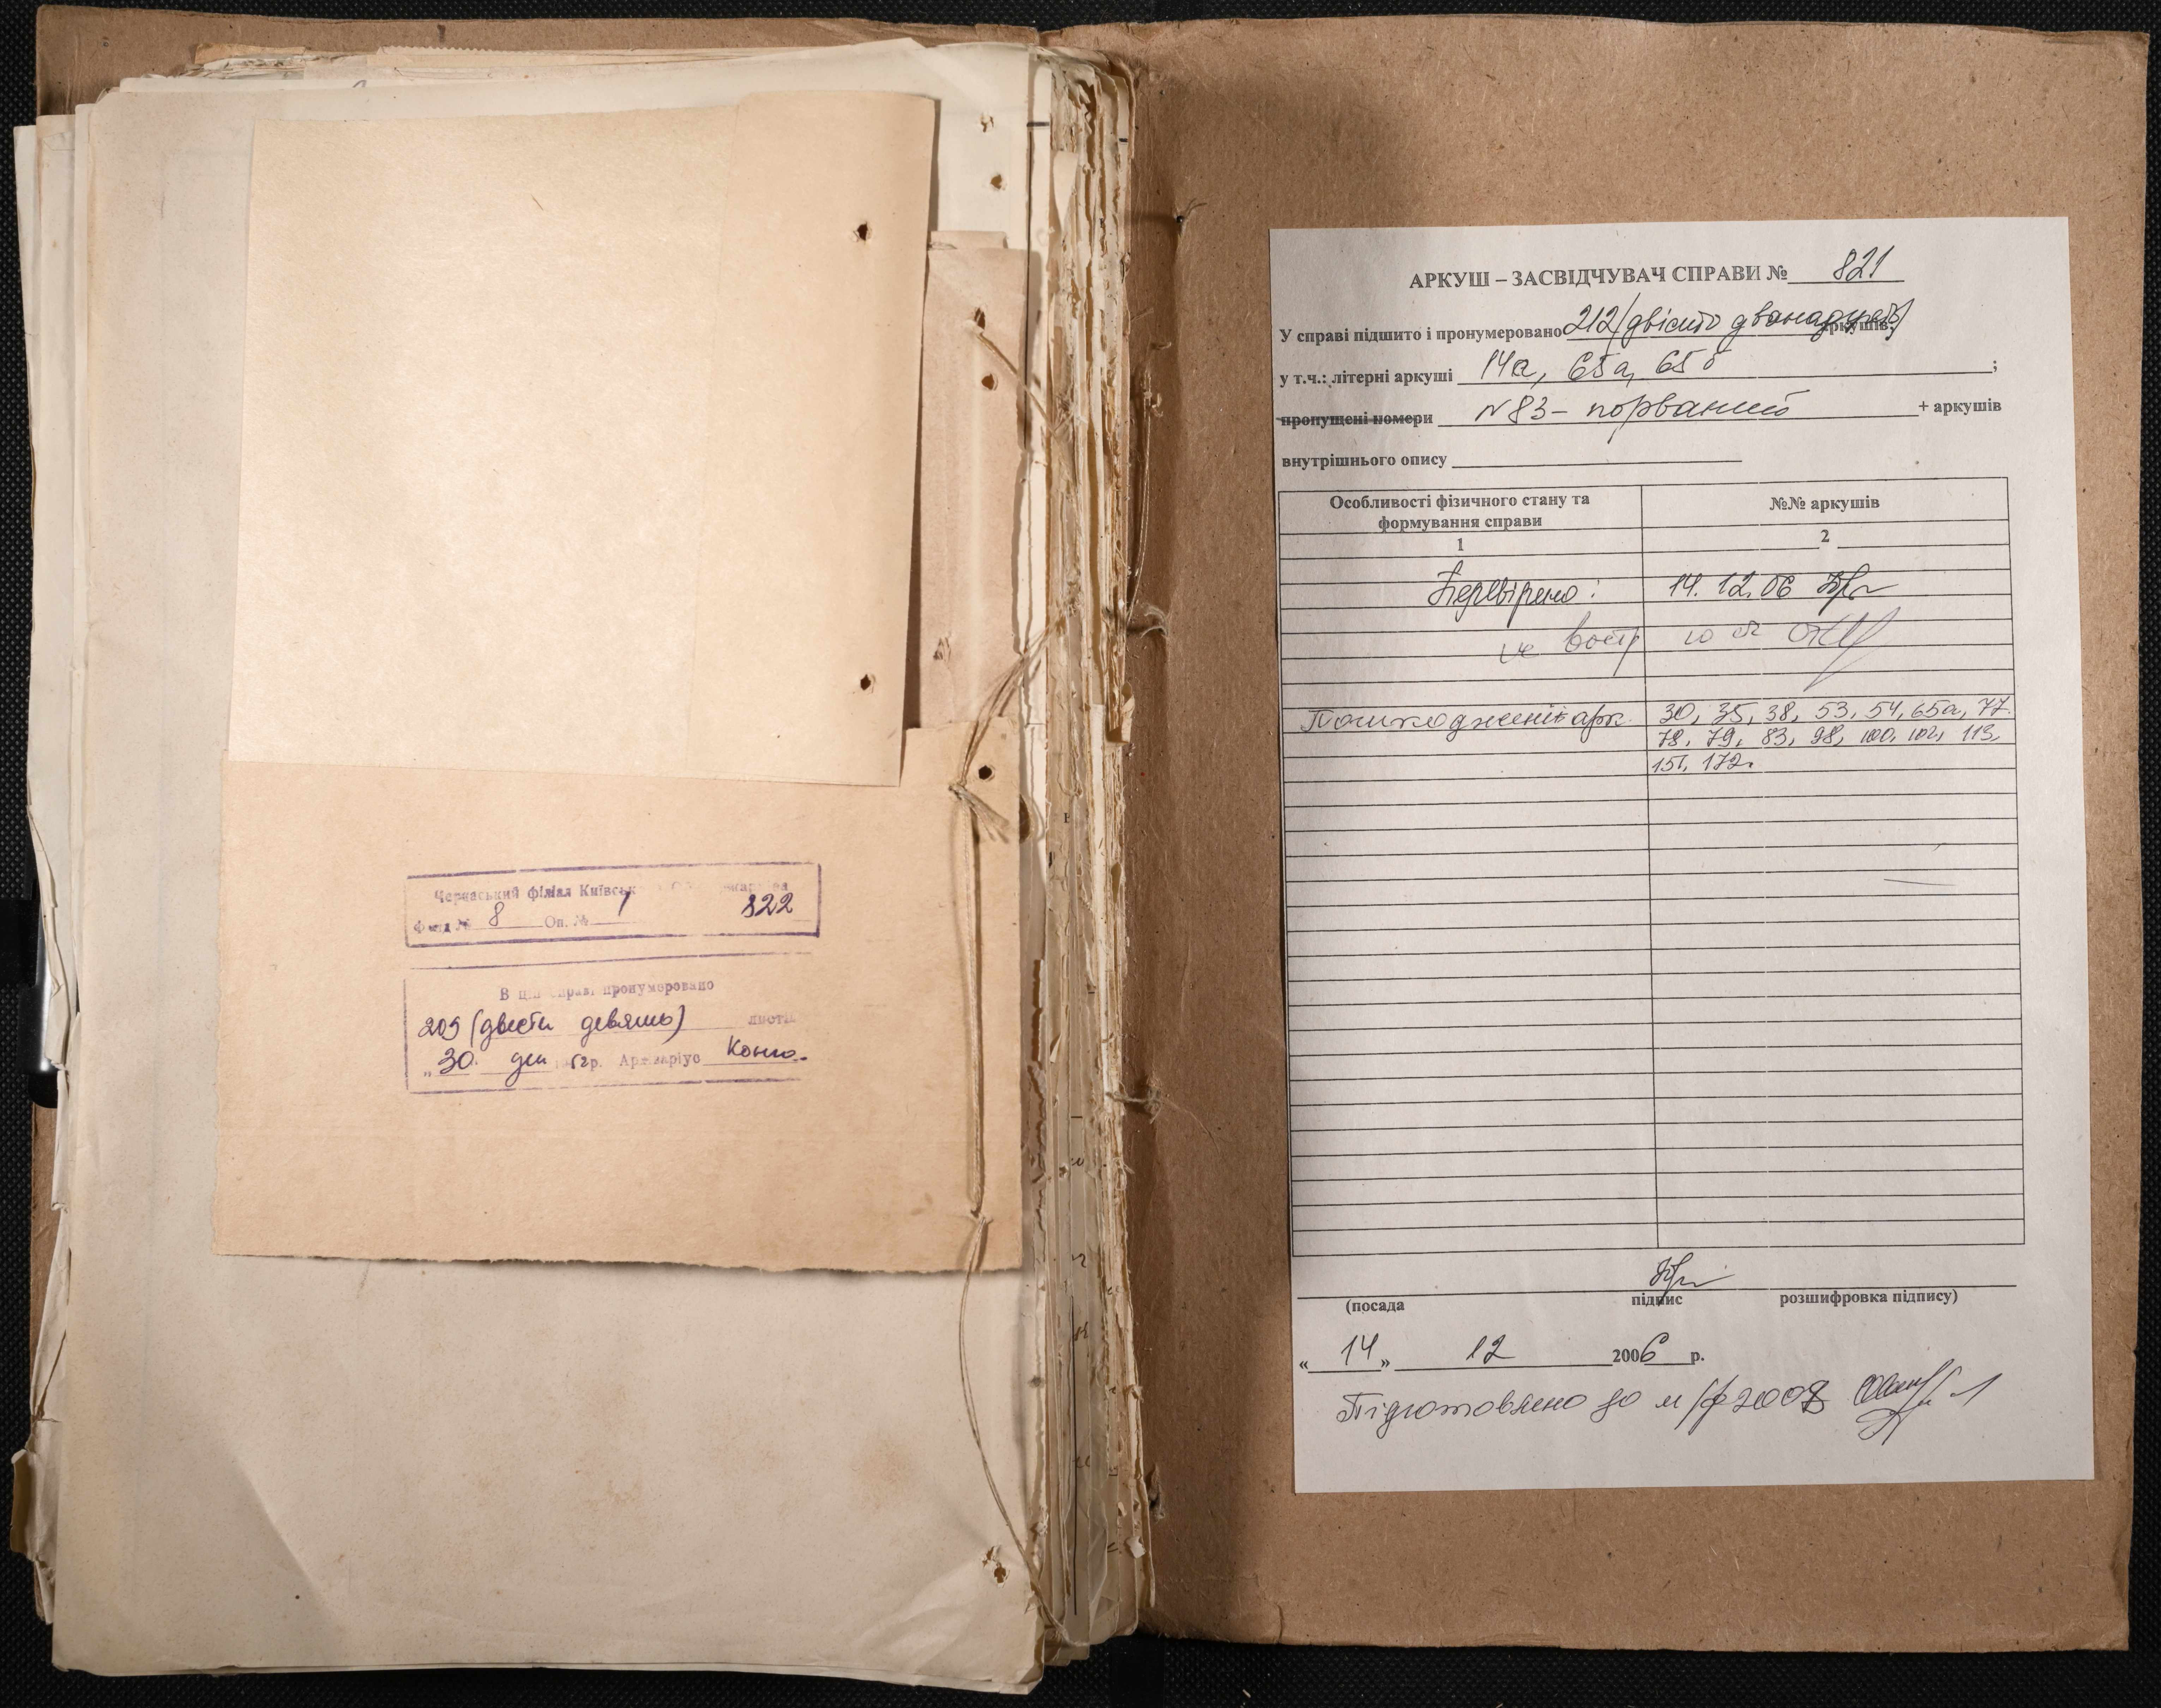 Черкаський філіал Київськ
Фонд № 8 Оп. № 1 822
В цій справі пронумеровано
209 (двести девять) листів
„30 дек 52р. Архіваріус
АРКУШ – ЗАСВІДЧУВАЧ СПРАВИ № 821
У справі підшито і пронумеровано 212 (двісті дванадцять) аркушів;
у т.ч.: літерні аркуші 14а, 65а, 65б ;
пропущені номери №83 – порваний + аркушів
внутрішнього опису
Особливості фізичного стану та формування справи
№№ аркушів
1
2
Перевірено: 14.12.06
Пошкоджені арк. 30, 35, 38, 53, 54, 65а, 77.
78, 79, 83, 98, 100, 102, 113,
151, 172.
(посада підпис розшифровка підпису)
« 14 » 12 2006 р.
Підготовлено до м/ф 2008